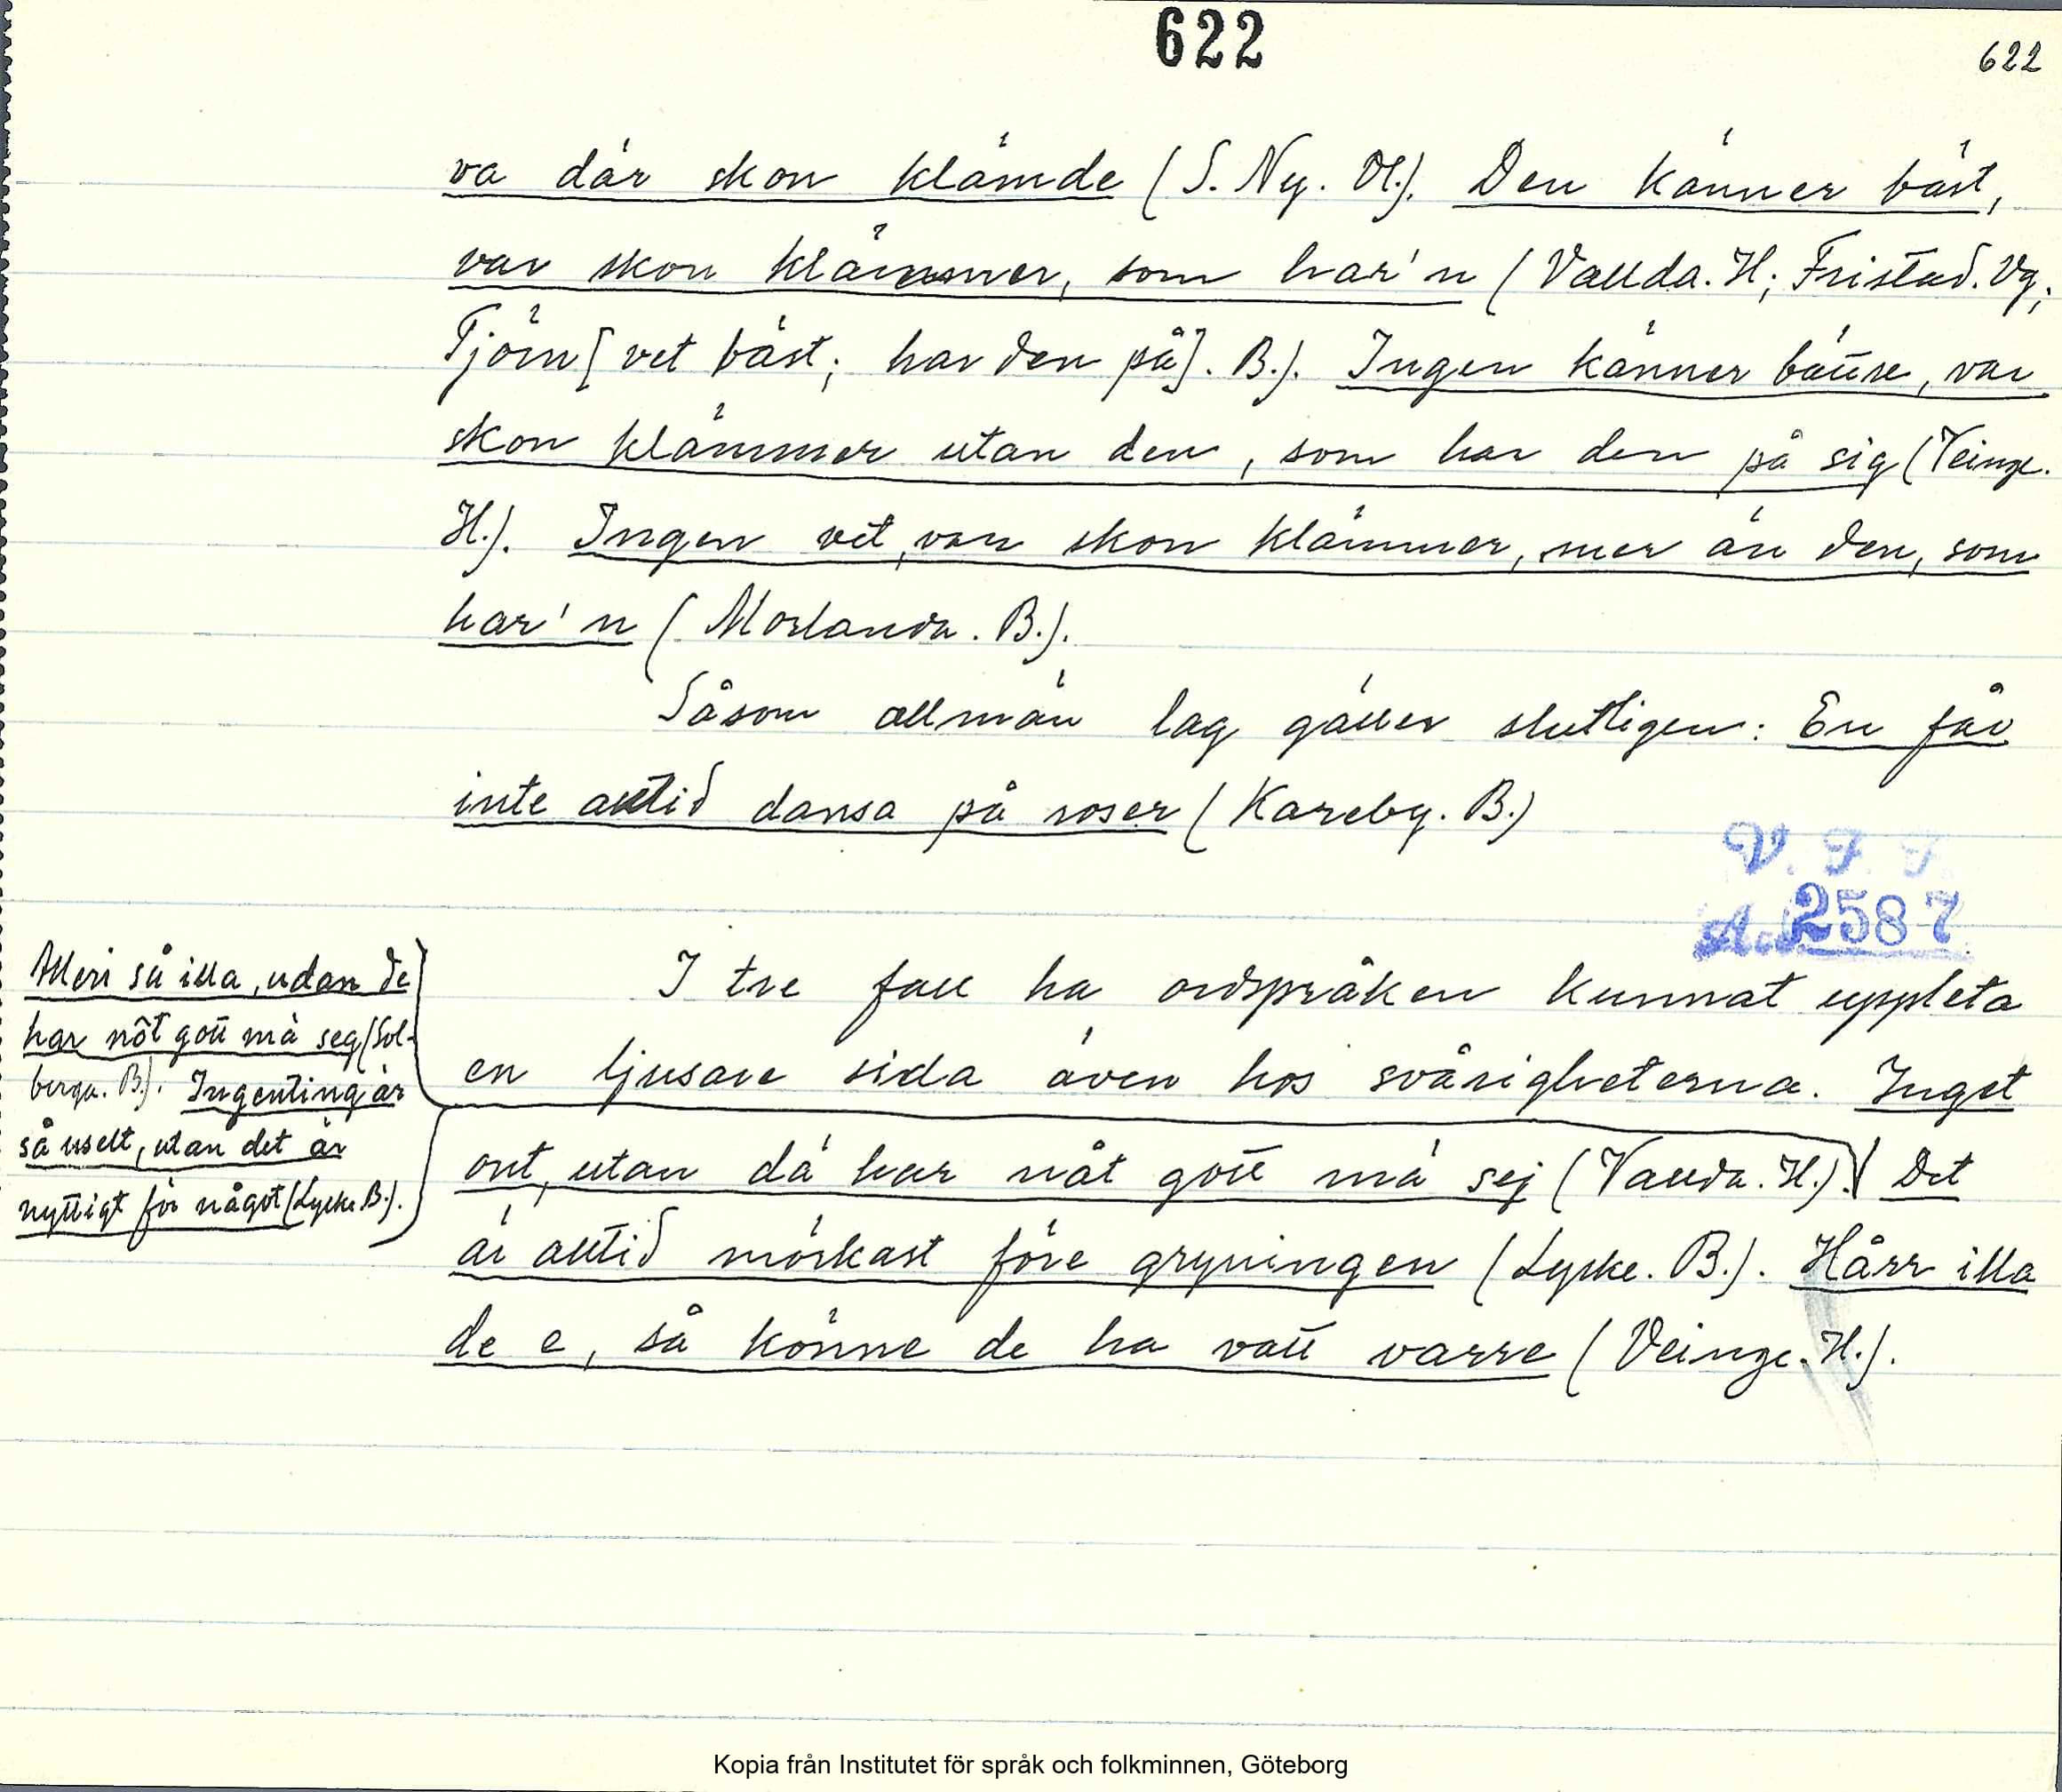 622
622
va där skon klämde (S. Ny. Vl.). Den känner bäst,
var skon klämmer, som har'n (Vallda. H; Fristad. Vg;
Tjörn [vet bäst; har den på]. B.). Ingen känner bättre, var
skon klämmer utan den, som har den på sig (Veinge.
H.). Ingen vet, var skon klämmer, mer än den, som
har'n (Morlanda. B.).
Såsom allmän lag gäller slutligen: En får
inte alltid dansa på roser (Kareby. B.)
V. F. F.
Acc 2587
I tre fall ha ordspråken kunnat uppleta
en ljusare sida även hos svårigheterna. Inget
ont, utan dä har nåt gott mä sej (Vallda. H.). Det
är alltid mörkast före gryningen (Lycke. B.). Hårr illa
de e, så könne de ha vatt varre (Veinge. H.).
Alleri så illa, udan de
har nôt gott mä seg (Sol-
berga. B.). Ingenting är
så uselt, utan det är
nyttigt för något (Lycke. B.).
Kopia från Institutet för språk och folkminnen, Göteborg